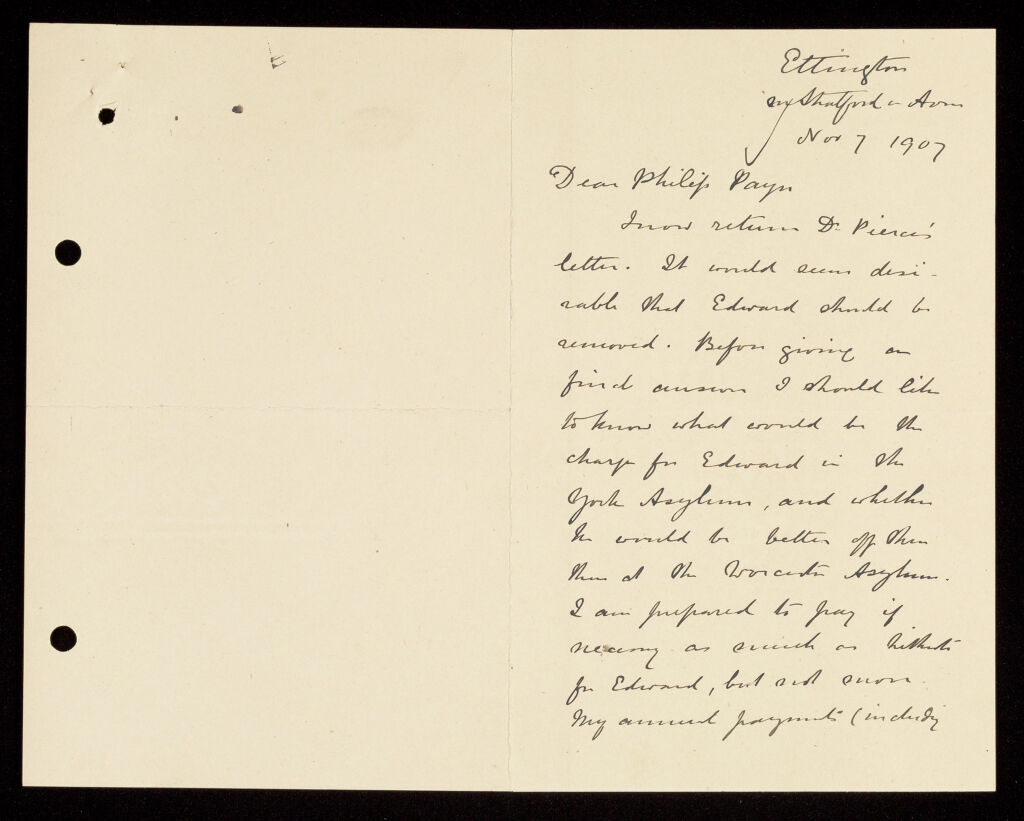 Ettington
nr Stratford on Avon
Nov 7 1907
Dear Philip Payn
I now return Dr. Pierce's
letter. It would seem desi-
rable that Edward should be
removed. Before giving an
final answer I should like
to know what would be the
charge for Edward in the
York Asylum, and whether
he would be better off there
than at the Worcester Asylum.
I am prepared to pay if
necessary as much as hitherto
for Edward, but not more.
My annual payments (including